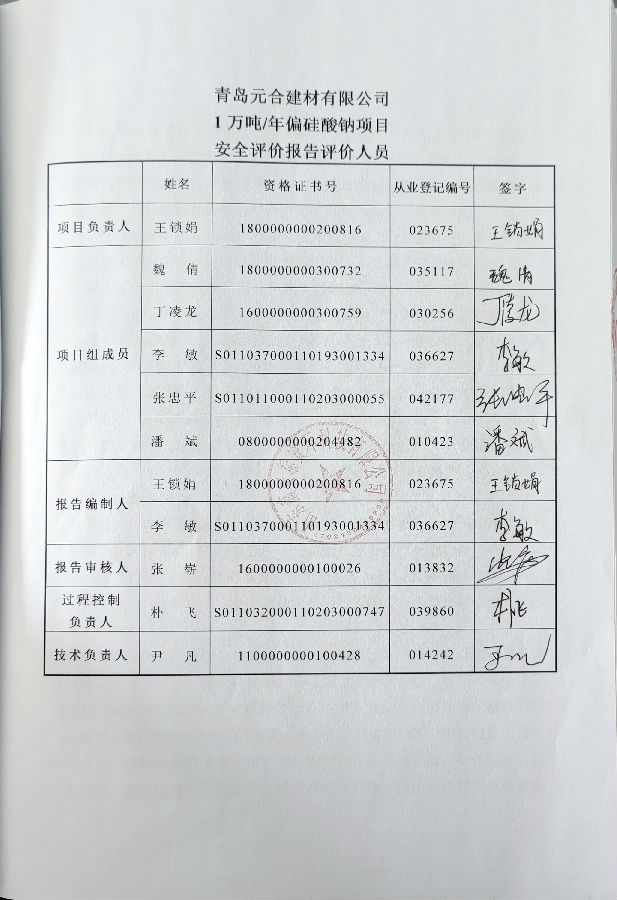 青岛元合建材有限公司
1 万吨/年偏硅酸钠项目
安全评价报告评价人员
姓名 资格证书号 从业登记编号 签字
项目负责人 王锁娟 1800000000200816 023675 王锁娟
项目组成员 魏 倩 1800000000300732 035117 魏倩
丁凌龙 1600000000300759 030256 丁凌龙
李 敏 S011037000110193001334 036627 李敏
张忠平 S011011000110203000055 042177 张忠平
潘 斌 0800000000204482 010423 潘斌
报告编制人 王锁娟 1800000000200816 023675 王锁娟
李 敏 S011037000110193001334 036627 李敏
报告审核人 张 嵛 1600000000100026 013832
过程控制
负责人 朴 飞 S011032000110203000747 039860 朴飞
技术负责人 尹 凡 1100000000100428 014242